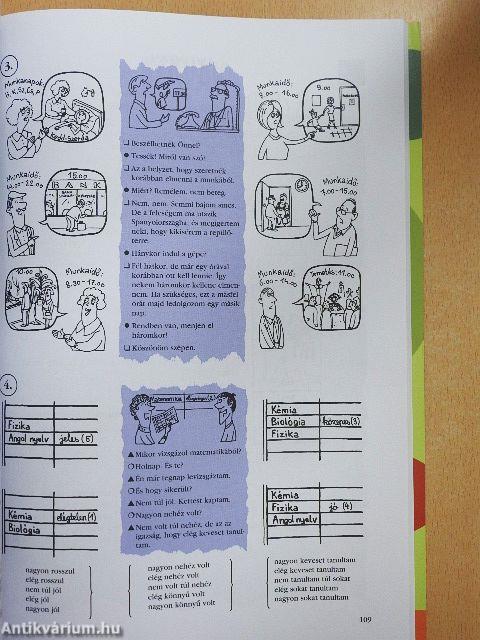 3.
Munkanapok:
H, K, Sz, Cs, P
Munkaidő:
15.00
BANK
10.00
Munkaidő:
8.30 - 17.00
□ Beszélhetnék Önnel?
● Tessék! Miről van szó?
□ Az a helyzet, hogy szeretnék
korábban elmenni a munkából.
● Miért? Remélem, nem beteg.
□ Nem, nem. Semmi bajom sincs.
De a feleségem ma utazik
Spanyolországba, és megígértem
neki, hogy kikísérem a repülő-
térre.
● Hánykor indul a gépe?
□ Fél hatkor, de már egy órával
korábban ott kell lennie. Így
nekem háromkor kellene elmen-
nem. Ha szükséges, ezt a másfél
órát majd ledolgozom egy másik
nap.
● Rendben van, menjen el
háromkor!
□ Köszönöm szépen.
Munkaidő:
8.00 - 16.00
9.00
Munkaidő:
7.00-15.00
Munkaidő:
6.00-14.00
Temetés: 11.00
4.
Fizika
Angol nyelv jeles (5)
Kémia elégtelen (1)
Biológia
Matematika elégséges (2)
▲ Mikor vizsgázol matematikából?
○ Holnap. És te?
▲ Én már tegnap levizsgáztam.
○ És hogy sikerült?
▲ Nem túl jól. Kettest kaptam.
○ Nagyon nehéz volt?
▲ Nem volt túl nehéz, de az az
igazság, hogy elég keveset tanul-
tam.
Kémia
Biológia közepes (3)
Fizika
Kémia
Fizika jó (4)
Angol nyelv
nagyon rosszul
elég rosszul
nem túl jól
elég jól
nagyon jól
nagyon nehéz volt
elég nehéz volt
nem volt túl nehéz
elég könnyű volt
nagyon könnyű volt
nagyon keveset tanultam
elég keveset tanultam
nem tanultam túl sokat
elég sokat tanultam
nagyon sokat tanultam
109
Antikvárium.hu